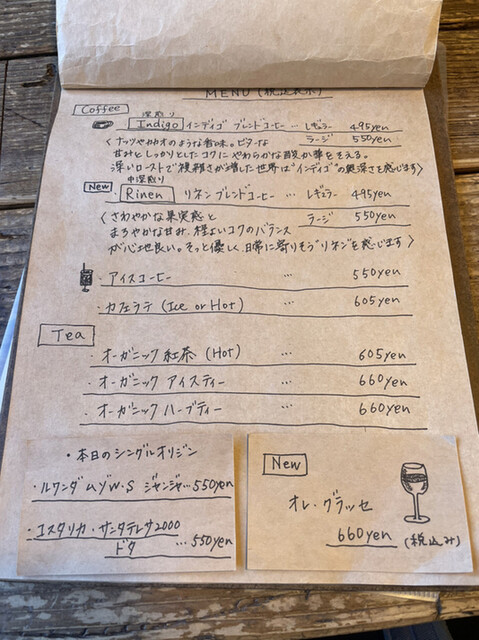 MENU (税込表示)
Coffee
深煎り
Indigo インディゴ ブレンドコーヒー … レギュラー 495yen
ラージ 550yen
〈ナッツやカカオのような香味。ビターな
甘みとしっかりとしたコクにやわらかな酸が華をそえる。
深いローストで複雑さが増した世界は"インディゴ"の奥深さを感じます〉
中深煎り
New Rinen リネンブレンドコーヒー … レギュラー 495yen
ラージ 550yen
〈さわやかな果実感と
まろやかな甘み、程よいコクのバランス
が心地良い。そっと優しく、日常に寄りそう"リネン"を感じます〉
・アイスコーヒー … 550yen
・カフェラテ (Ice or Hot) … 605yen
Tea
・オーガニック 紅茶 (Hot) … 605yen
・オーガニック アイスティー … 660yen
・オーガニック ハーブティー … 660yen
・本日のシングルオリジン
・ルワンダ ムゾW.S ジャンジャ…550yen
・コスタリカ・サンタテレサ2000
ドタ …550yen
New
オレ・グラッセ
660yen (税込み)